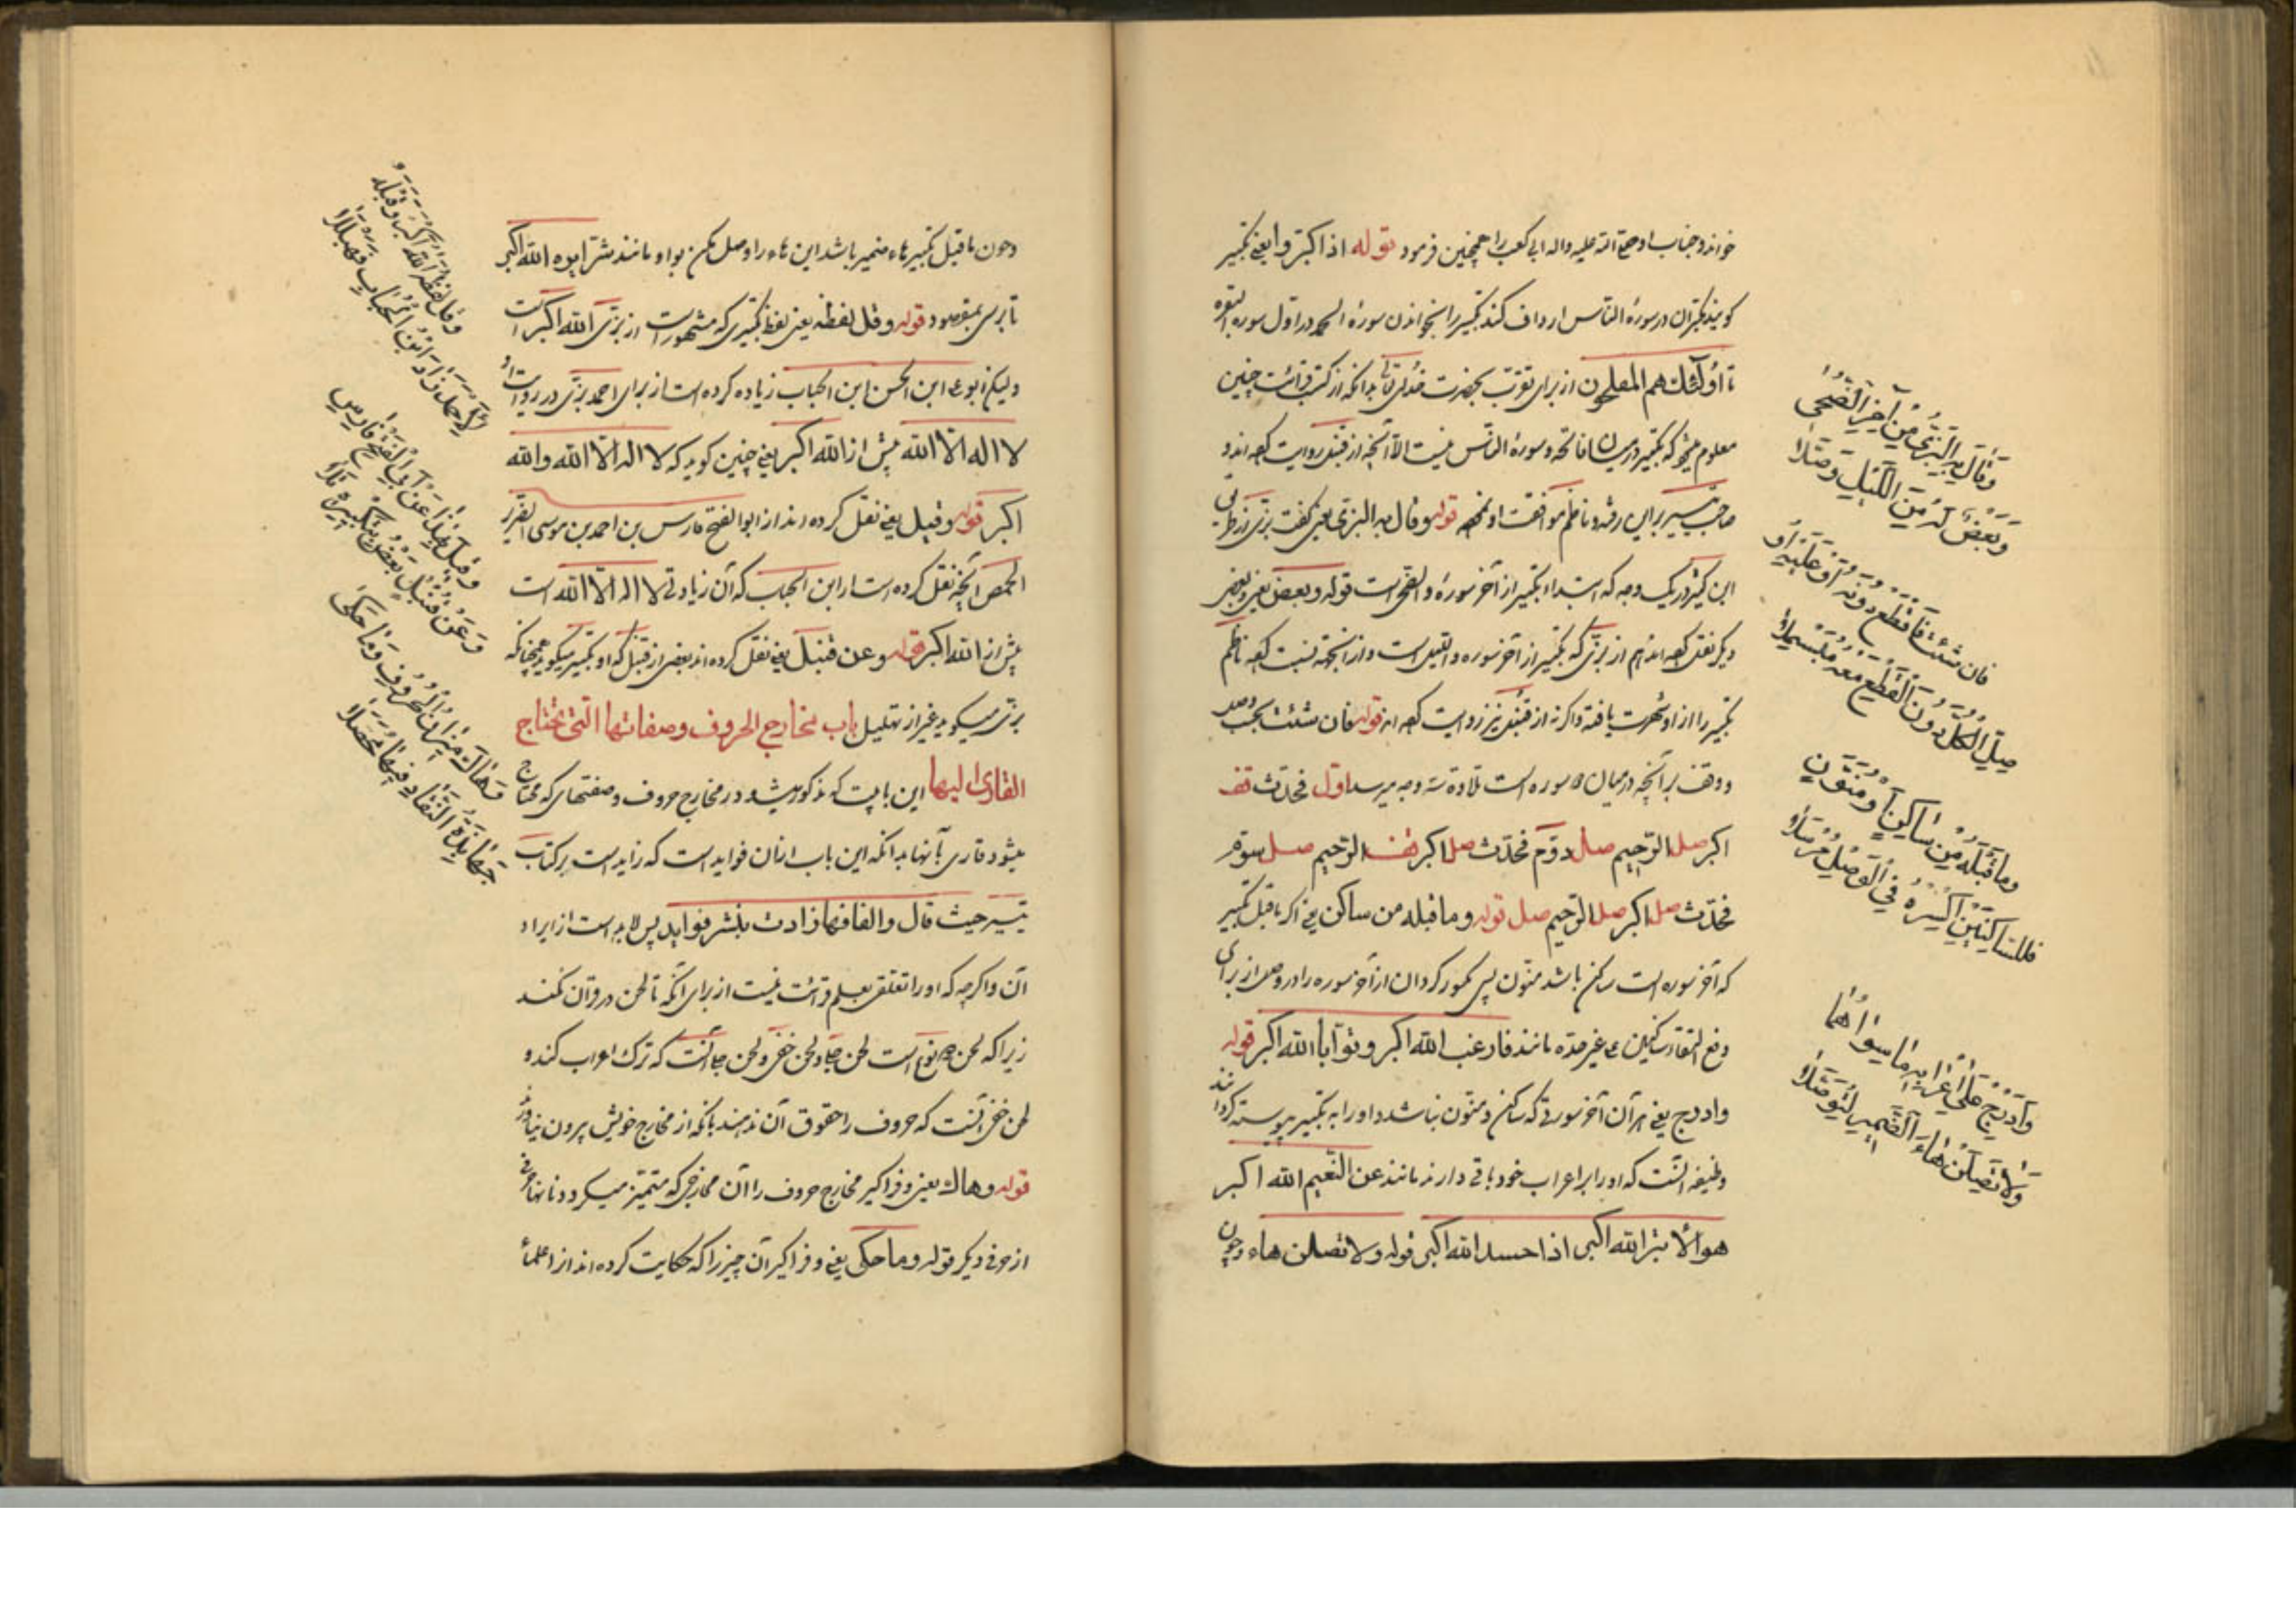 خواند و جناب او صلی الله علیه واله ابی کعب را همچنین فرمود قوله اذا کبّروا یعنی تکبیر
کویند مکبّران در سورهٔ النّاس ارداف کنند تکبیر را بخواندن سورهٔ الحمد در اوّل سوره البقره
تا أولٓئک هم المفلحون از برای تقرّب بحضرت خدای تعالی بدانکه از کتب قرائت چنین
معلوم میشود که تکبیر در میان فاتحه و سورهٔ النّاس نیست الّا آنچه از قنبل روایت کرده اند و
صاحب تیسیر براین رفته و ناظم موافقت او نموده قوله وقال به البزی یعنی گفت بزّی از طریق
ابن کثیر در یک وجه که ابتداء تکبیر از آخر سورهٔ والضّحی است قوله وبعض یعنی وبعض
دیگر نقل کرده اند هم از بزّی که تکبیر از آخر سوره واللّیل است و از آنجهة نسبت کرده ناظم
تکبیر را از او شهرت یافته و اکر نه از قنبل نیز روایت کرده اند قوله فان شئت بحسب وصل
ووقف برآنچه در میان دو سوره است تلاوة سه وجه میرسد اوّل فحدّث قف
اکبر صل الرّحیم صل دوّم فحدّث صل اکبر قف الرّحیم صل سوم
فحدّث صل اکبر صل الرّحیم صل قوله وما قبله من ساکن یعنی اکر ما قبل تکبیر
که آخر سوره است ساکن باشد منوّن پس مکسور کردان از آخر سوره را در وصل از برای
دفع التقاء ساکنین علی غیر حدّه مانند فارغب الله اکبر و توّاباً الله اکبر قوله
وادرج یعنی هر آن آخر سورتی که ساکن و منوّن نباشد او را به تکبیر پیوسته کردانند
وظیفه آنست که او را بر اعراب خود باقی دارند مانند عن النّعیم الله اکبر
هو الابتر الله اکبر اذا حسد الله اکبر قوله ولا تصلن هاء وچون
وَقَالَ بِهِ الْبَزِّيُّ مِنْ آخِرِ الضُّحٰى
وَبَعْضٌ لَهُ مِنْ آخِرِ اللَّيْلِ وَصَّلَا
فان شئت فَاقْطَعْ دُونَهُ اَوْ عَلَيْهِ اَوْ
صِلِ الْكُلَّ دُونَ الْقَطْعِ مَعْهُ مُبَسْمِلَا
وما قَبْلَهُ مِنْ سَاكِنٍ اَوْ مُنَوَّنٍ
فللسّاكِنَيْنِ اكْسِرْهُ فِي الْوَصْلِ مُرْسَلَا
وَاَدْرِجْ عَلٰى اِعْرَابِهِ مَا سِوَاهُمَا
وَلَا تَصِلَنْ هَاءَ الضَّمِيرِ لِتُوصَلَا
وچون ما قبل تکبیر هاء ضمیر باشد این هاء را وصل مکن بواو مانند شرّاً یره الله اکبر
تا برسی بمقصود قوله وقل لفظه یعنی لفظ تکبیری که مشهور است از بزّی الله اکبر است
ولیکن ابو علی ابن الحسن ابن الحباب زیاده کرده است از برای احمد بزّی در روایت او
لا اله الّا الله پیش از الله اکبر یعنی چنین کوید که لا اله الّا الله والله
اکبر قوله وقیل یعنی نقل کرده اند از ابو الفتح فارس بن احمد بن موسی الضریر
الحمصی آنچه نقل کرده است از ابن الحباب که آن زیادتی لا اله الّا الله است
پیش از الله اکبر قوله وعن قنبل یعنی نقل کرده اند بعضی از قنبل که او تکبیر میکوید همچنانکه
بزی میکوید غیر از تهلیل باب مخارج الحروف وصفاتها الّتی یحتاج
القاری الیها این بابیست که مذکور میشود در مخارج حروف و صفتهای که محتاج
میشود قاری بآنها بدانکه این باب ازان فواید است که زاید است بر کتاب
تیسیر حیث قال والفافها زادت بنشر فواید پس لا بد است از ایراد
آن و اکرچه که او را تعلّقی بعلم قرائت نیست از برای آنکه تا لحن در قرآن نکنند
زیرا که لحن دو نوع است لحن جلی و لحن خفی و لحن جلی آنست که ترک اعراب کند و
لحن خفی آنست که حروف را حقوق آن ندهند بآنکه از مخارج خویش بیرون نیاورد
قوله وهاک یعنی و فراکیر مخارج حروف را آن مخارجی که متمیّز میکردد بآنها حرفی
از حرفی دیکر قوله وما حکی یعنی و فراکیر آن چیز را که حکایت کرده اند از علماء
وقل لفظه اللهُ اَكْبَرُ وَقَبْلَهُ
لِاَحْمَدَ زَادَ ابْنُ الْحُبَابِ فَهَيْلَلَا
وقيلَ بِهٰذَا عَنْ اَبِي الْفَتْحِ فَارِسٍ
وَعَنْ قُنْبُلٍ بَعْضٌ بِتَكْبِيرِهِ تَلَا
وَهَاكَ مَوَازِينَ الْحُرُوفِ وَمَا حَكٰى
جَهَابِذَةُ النُّقَّادِ فِيهَا مُحَصَّلَا